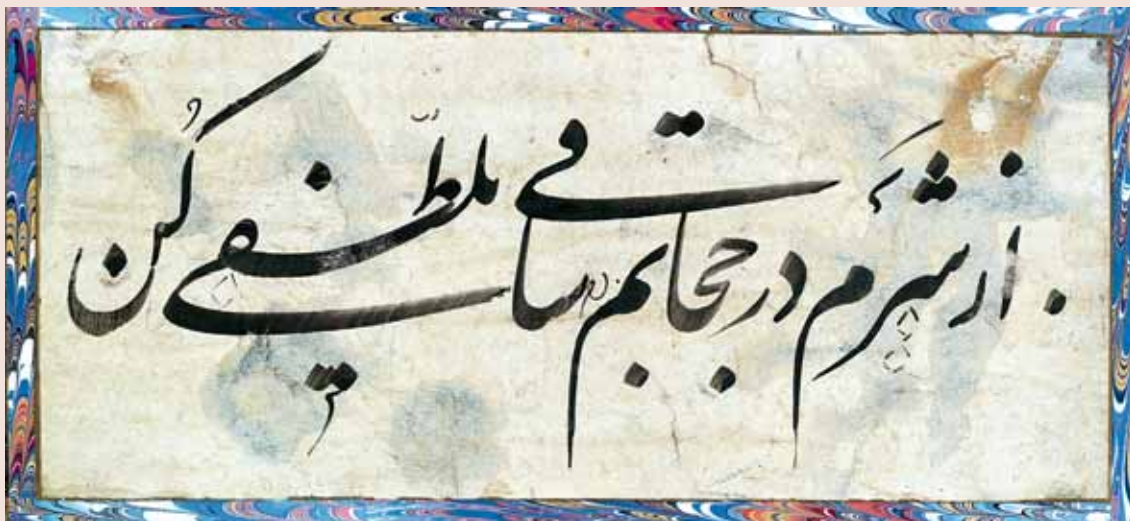 از شَرم در حجابم ساقی تلطّفی کُن